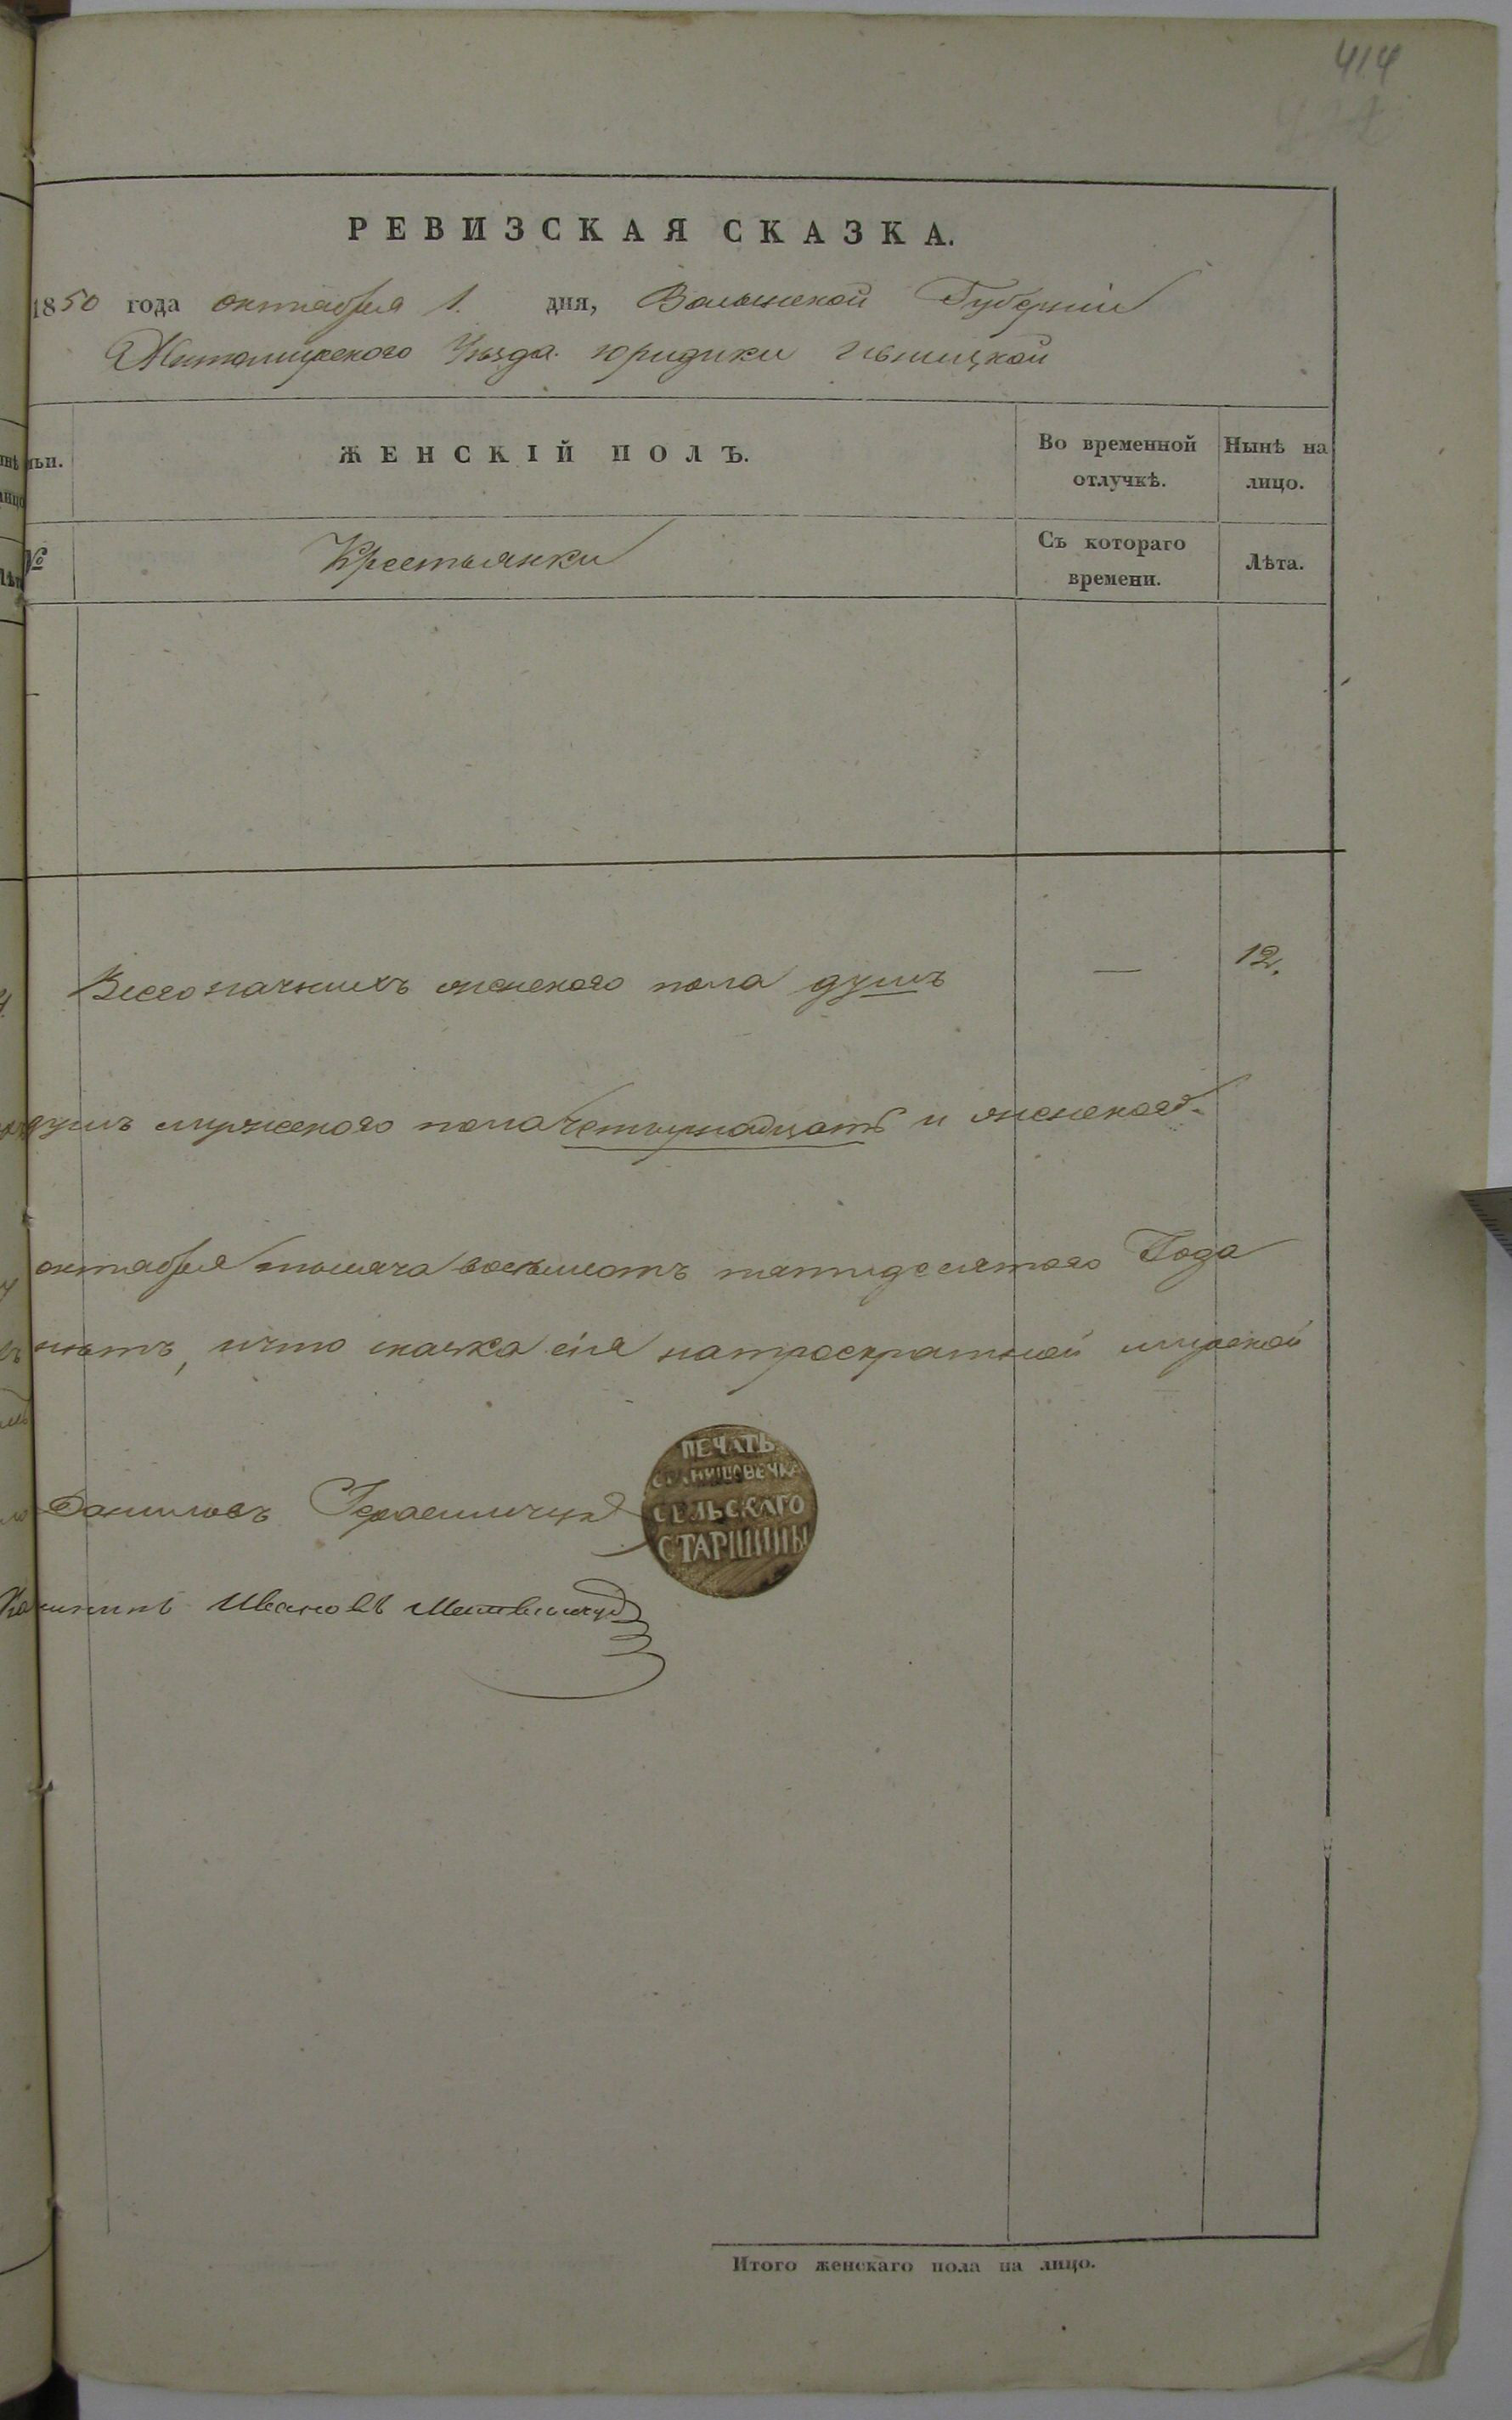 414
РЕВИЗСКАЯ СКАЗКА.
1850 года октября 1. дня, Волынской Губернии
Житомирского Уѣзда юридики Ивницкой
ЖЕНСКІЙ ПОЛЪ.
Во временной отлучкѣ.
Нынѣ на лицо.
№
Крестьянки
Съ котораго времени.
Лѣта.
Всего наличныхъ женского пола душъ — 12.
душъ мужеского пола четырнадцать и женского
октября тысяча восемьсотъ пятидесятого Года
нѣтъ, и что сказка сія на троекратной мирской
Даниловъ Герасимчукъ
Ивановъ
ПЕЧАТЬ
СЕЛЬСКАГО
СТАРШИНЫ
Итого женскаго пола на лицо.